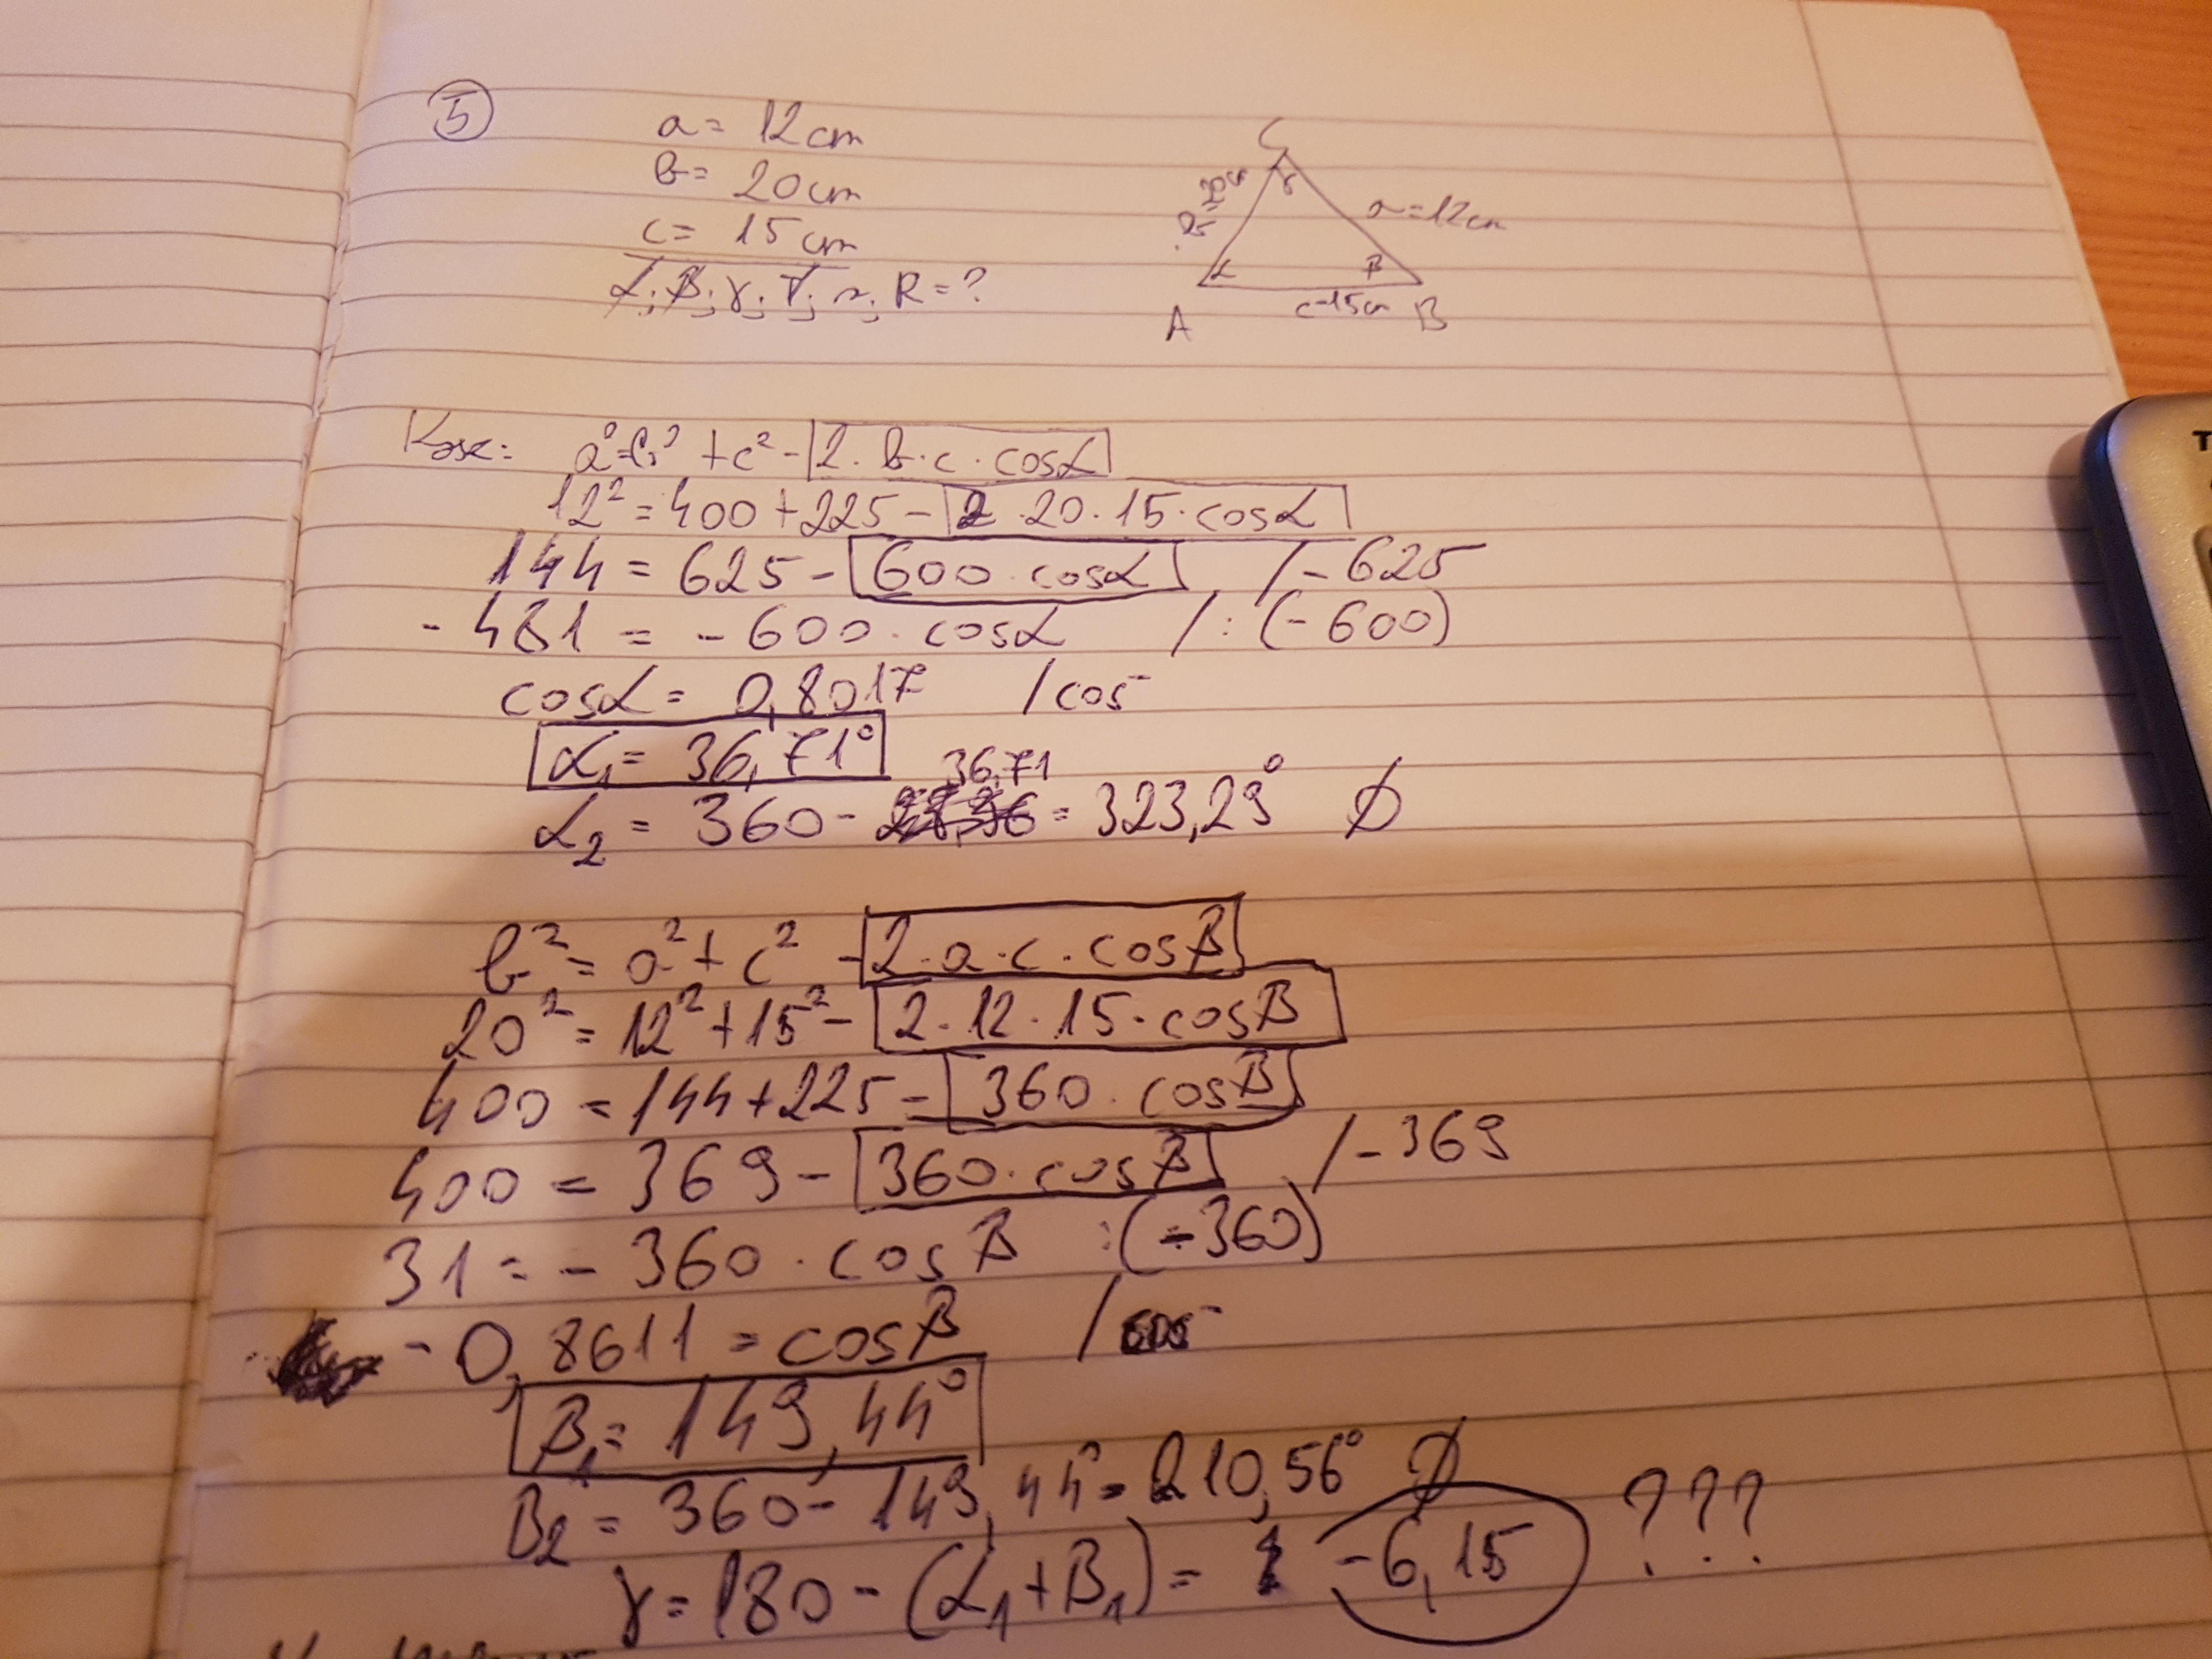 5
a = 12cm
b = 20cm
c = 15cm
α; β; γ; T; r; R = ?
C
γ
b = 20cm
a = 12cm
α
β
c = 15cm
A
B
a² = b² + c² - 2 · b · c · cosα
12² = 400 + 225 - 2 · 20 · 15 · cosα
144 = 625 - 600 · cosα /-625
-481 = -600 · cosα /:(-600)
cosα = 0,8017 /cos⁻
α₁ = 36,71°
36,71
α₂ = 360 - = 323,29° Ø
b² = a² + c² - 2 · a · c · cosβ
20² = 12² + 15² - 2 · 12 · 15 · cosβ
400 = 144 + 225 - 360 · cosβ
400 = 369 - 360 · cosβ /-369
31 = -360 · cosβ :(-360)
-0,8611 = cosβ /cos⁻
β₁ = 149,44°
β₂ = 360 - 149,44° = 210,56° Ø
γ = 180 - (α₁ + β₁) = -6,15 ???
T